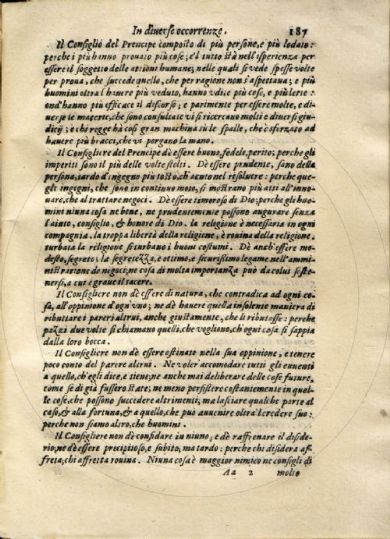 In diuerse occorrenze. 187
Il Consiglio del Prencipe composto di più persone, e più lodato:
perche i più hanno prouato più cose; e'l tutto stà nell'isperienza per
essere il soggetto delle attioni humane; nelle quali si vede spesse volte
per proua, che succede quello, che per ragione non s'aspettaua; e più
huomini oltra l'hauere più veduto, hanno vdite più cose, e più lette:
ond'hanno più efficace il discorso; e parimente per essere molte, e di-
uerse le materie, che sono consultate vi si ricercano molti e diuersi giu-
dicij; e chi regge hà così gran machina su le spalle, che è sforzato ad
hauere più bracci, che vi porgano la mano.
Il Consigliere del Prencipe dè essere buono, fedele, perito; perche gli
imperiti sono il più delle volte stolti. Dè essere prudente, sano della
persona, tardo d'ingegno più tosto, ch'acuto nel risoluere: perche que-
gli ingegni, che sono in continuo moto, si mostrano più atti all'inno-
uare, che al trattare negocij. Dè essere timoroso di Dio; perche gli huo-
mini niuna cosa nè bene, ne prudentemente possono augurare senza
l'aiuto, consiglio, & honore di Dio. la religione è necessaria in ogni
compagnia. la troppa libertà della religione, è rouina della religione.
turbata la religione si turbano i buoni costumi. Dè anch'essere mo-
desto, segreto: la segretezza, è ottimo, e securissimo legame nell'ammi-
nistratione de negocij; ne cosa di molta importanza può da colui soste-
nersi, a cui è graue il tacere.
Il Consigliere non dè essere di natura, che contradica ad ogni co-
sa, all'oppinione d'ogni vno; ne dè hauere quella insolente maniera di
ributtare i pareri altrui, anche giustamente, che li ributtasse: perche
pazzi due volte si chiamano quelli, che vogliono, ch'ogni cosa si sappia
dalla loro bocca.
Il Consigliere non dè essere ostinato nella sua oppinione, e tenere
poco conto del parere altrui. Ne voler accomodare tutti gli euenti
a quello, ch'egli dice, e tiene; ne anche mai deliberare delle cose future,
come se di già fussero state; ne meno persistere costantemente in quel-
le cose, che possono succedere altrimenti, ma lasciare qualche parte al
caso, & alla fortuna, & a quello, che può auuenire oltra'l credere suo:
perche non siamo altro, che huomini.
Il Consigliere non dè confidare in niuno; e dè raffrenare il deside-
rio, ne dè essere precipitoso, e subito, ma tardo: perche chi disidera af-
fretta, chi affretta rouina. Niuna cosa è maggior nimico ne consigli di
Aa 2 molto